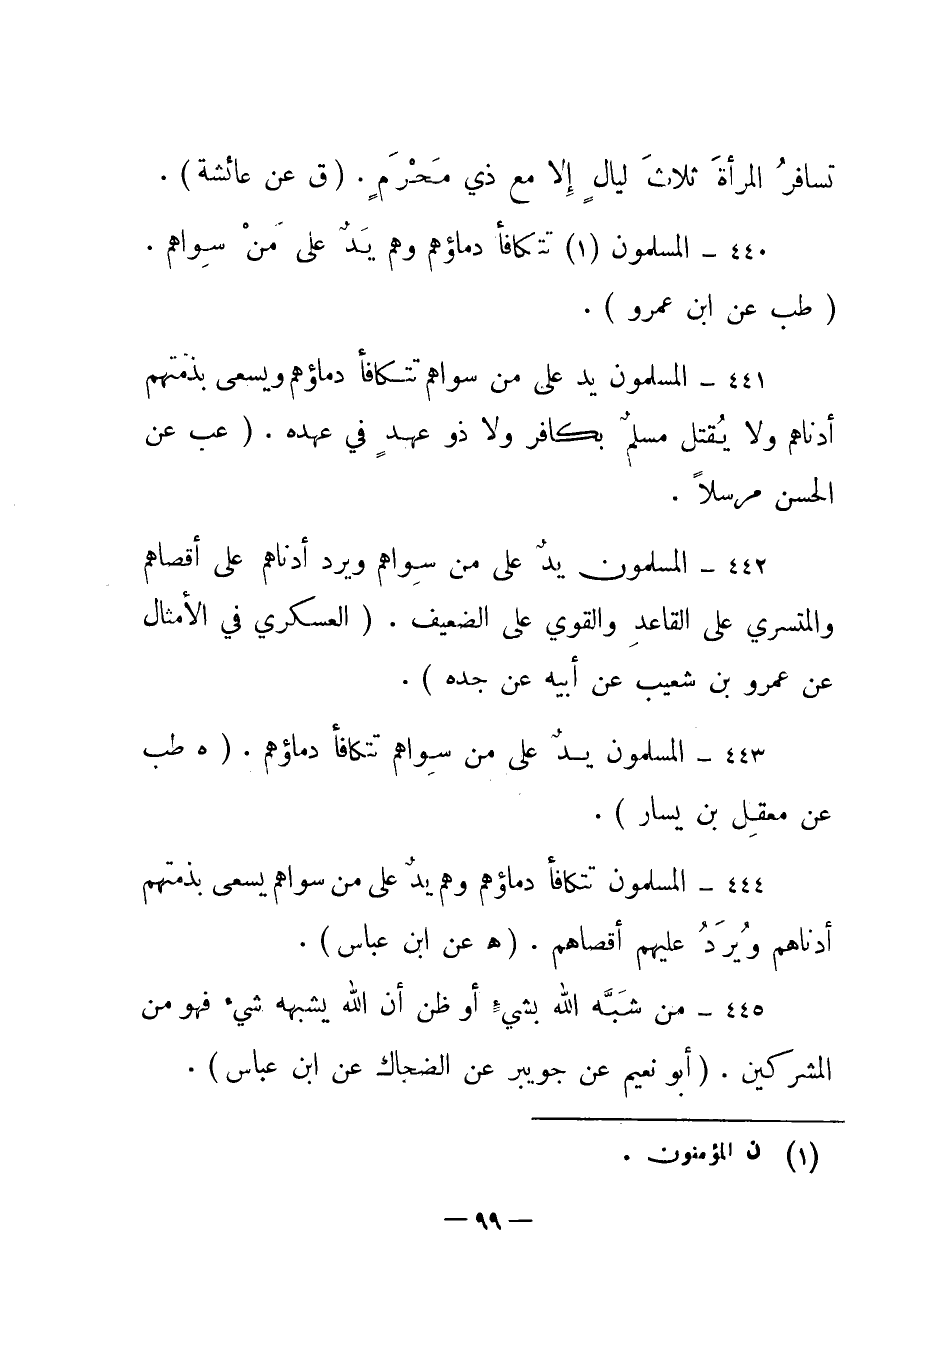 تسافرُ المرأةَ ثلاثَ ليالٍ إِلا مع ذي مَحْرَمٍ . ( ق عن عائشة ) .
٤٤٠ – المسلمون (١) تتكافأ دماؤهم وهم يَدٌ على مَنْ سواهم .
( طب عن ابن عمرو ) .
٤٤١ – المسلمون يد على من سواهم تتكافأ دماؤهم ويسعى بذمتهم
أدناهم ولا يُقتل مسلمٌ بكافر ولا ذو عهدٍ في عهده . ( عب عن
الحسن مرسلاً .
٤٤٢ – المسلمون يدٌ على من سواهم ويرد أدناهم على أقصاهم
والمتسري على القاعد والقوي على الضعيف . ( العسكري في الأمثال
عن عمرو بن شعيب عن أبيه عن جده ) .
٤٤٣ – المسلمون يدٌ على من سواهم تتكافأ دماؤهم . ( ه طب
عن معقل بن يسار ) .
٤٤٤ – المسلمون تتكافأ دماؤهم وهم يدٌ على من سواهم يسعى بذمتهم
أدناهم ويُرَدُ عليهم أقصاهم . ( ه عن ابن عباس ) .
٤٤٥ – من شَبَّه الله بشيءٍ أو ظن أن الله يشبهه شيء فهو من
المشركين . ( أبو نعيم عن جويبر عن الضحاك عن ابن عباس ) .
(١) ن المؤمنون .
— ٩٩ —